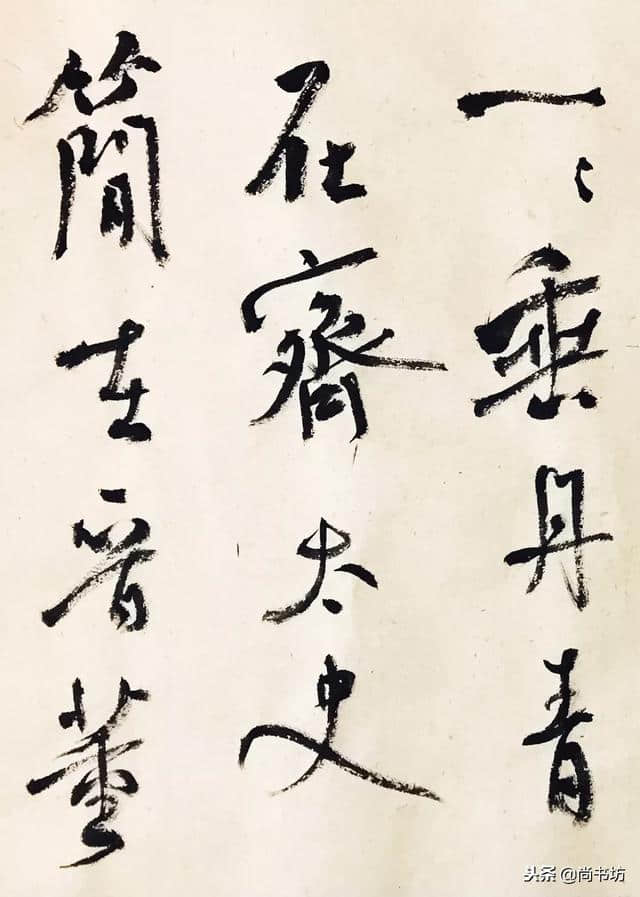 一々垂丹青
在齊太史
簡在晉董
头条@尚书坊